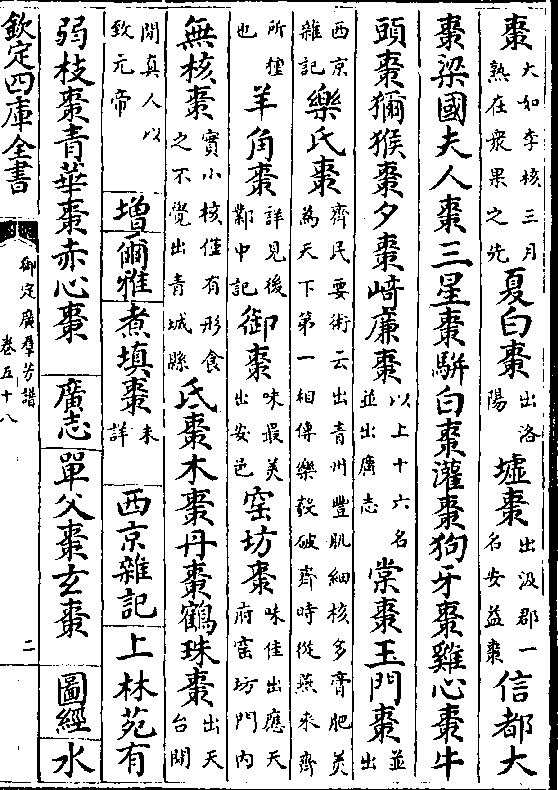 棗大如李核三月熟在衆果之先夏白棗出洛陽墟棗出汲郡一名安益棗信都大
棗梁國夫人棗三星棗駢白棗灌棗狗牙棗雞心棗牛
頭棗獼猴棗夕棗崎廉棗以上十六名並出廣志棠棗玉門棗並出
西京雜記樂氏棗齊民要術云出青州豐肌細核多膏肥美為天下第一相傳樂毅破齊時從燕來齊
所種也羊角棗詳見後鄴中記御棗味最美出安邑窑坊棗味佳出應天府窑坊門内
無核棗實小核僅有形食之不覺出青城縣氏棗木棗丹棗鶴珠棗出天台閒
閒真人以致元帝增爾雅煮填棗未詳西京雜記上林苑有
弱枝棗青華棗赤心棗 廣志單父棗玄棗 圖經水
欽定四庫全書 御定廣羣芳譜 卷五十八 二